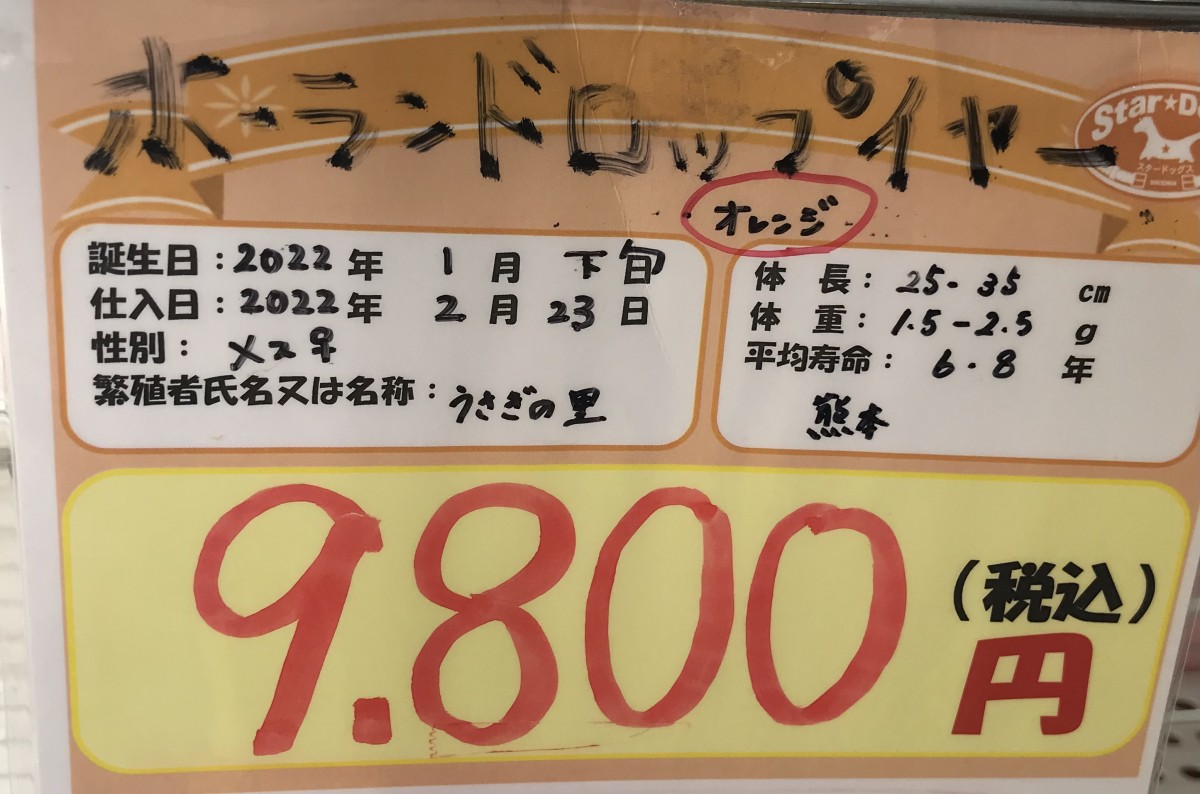 ホーランドロップイヤー
Star★D
スタードッグス
オレンジ
誕生日：2022年 1月 下旬
仕入日：2022年 2月 23日
性別：メス♀
繁殖者氏名又は名称：うさぎの里
体 長：25-35 cm
体 重：1.5-2.5 g
平均寿命：6.8 年
熊本
9.800
(税込)
円